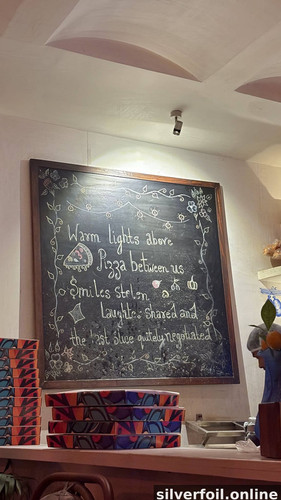 Warm lights above
Pizza between us
Smiles stolen
Laughter shared and
the last slice quietly negotiated
silverfoil.online